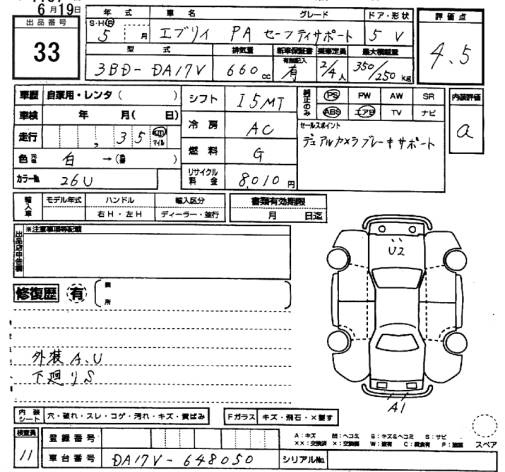 6月19日
出品番号 年 式 車 名 グレード ドア・形状 評価点
33 S・H(R) 5 月 エブリイ PA セーフティサポート 5 V 4.5
型 式 排気量 新車保証書 乗車定員 最大積載量
3BD-DA17V 660cc 有無記入 有 2/4人 350/250kg
車歴 自家用・レンタ( ) シフト I5MT 純正のみ PS PW AW SR 内装評価
車検 年 月( 日) 冷房 AC ABS エアB TV ナビ a
走行 , 35 km マイル セールスポイント
色 白 →( ) 燃料 G デュアルカメラブレーキサポート
カラーNo. 26U リサイクル料金 8,010円
輸入車 モデル年式 ハンドル 輸入区分 書類有効期限
右H・左H ディーラー・並行 月 日迄
※注意事項等記載
U2
修復歴 有 箇所
外装 A,U
下廻りS
A1
内装シート 穴・破れ・スレ・コゲ・汚れ・キズ・黄ばみ Fガラス キズ・飛石・X要す
検査員 登録番号 A:キズ U:ヘコミ B:キズ&ヘコミ S:サビ スペア
11 車台番号 DA17V-648050 シリアルNo.